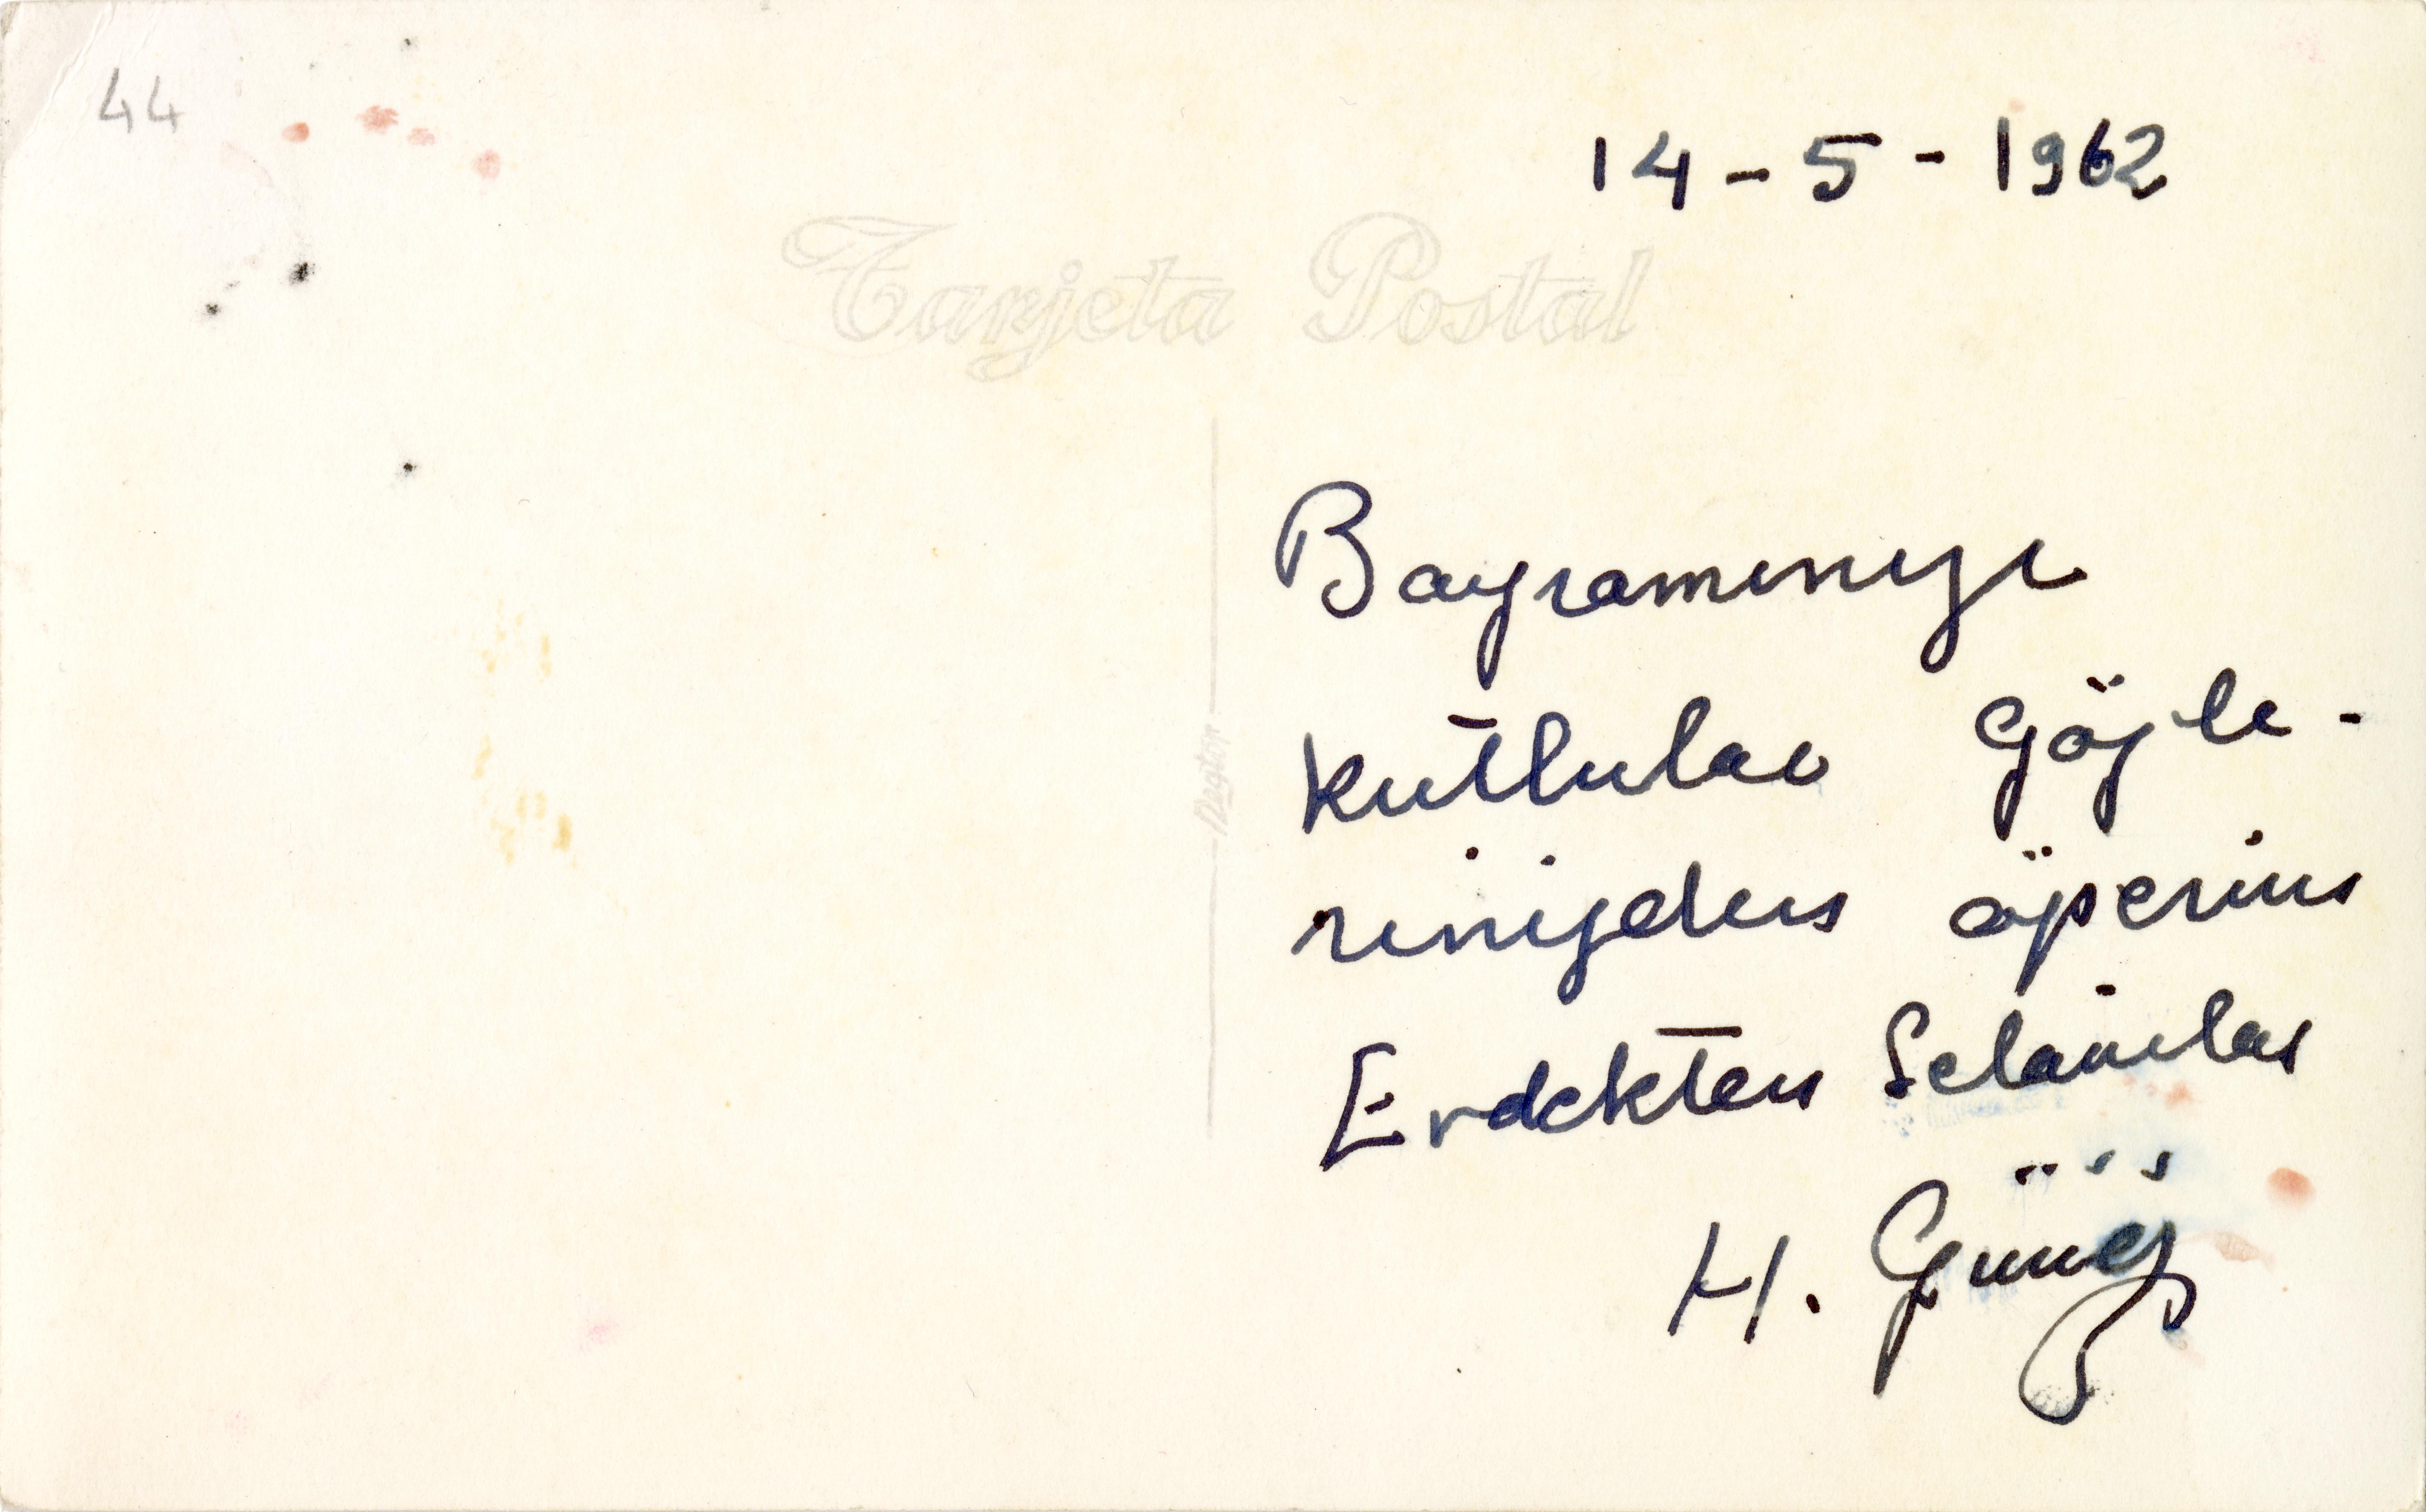 44
14-5-1962
Tarjeta Postal
Bayramınızı
kutlular Gözle-
rinizden öperim
Erdekten Selâmlar
H. Güneş